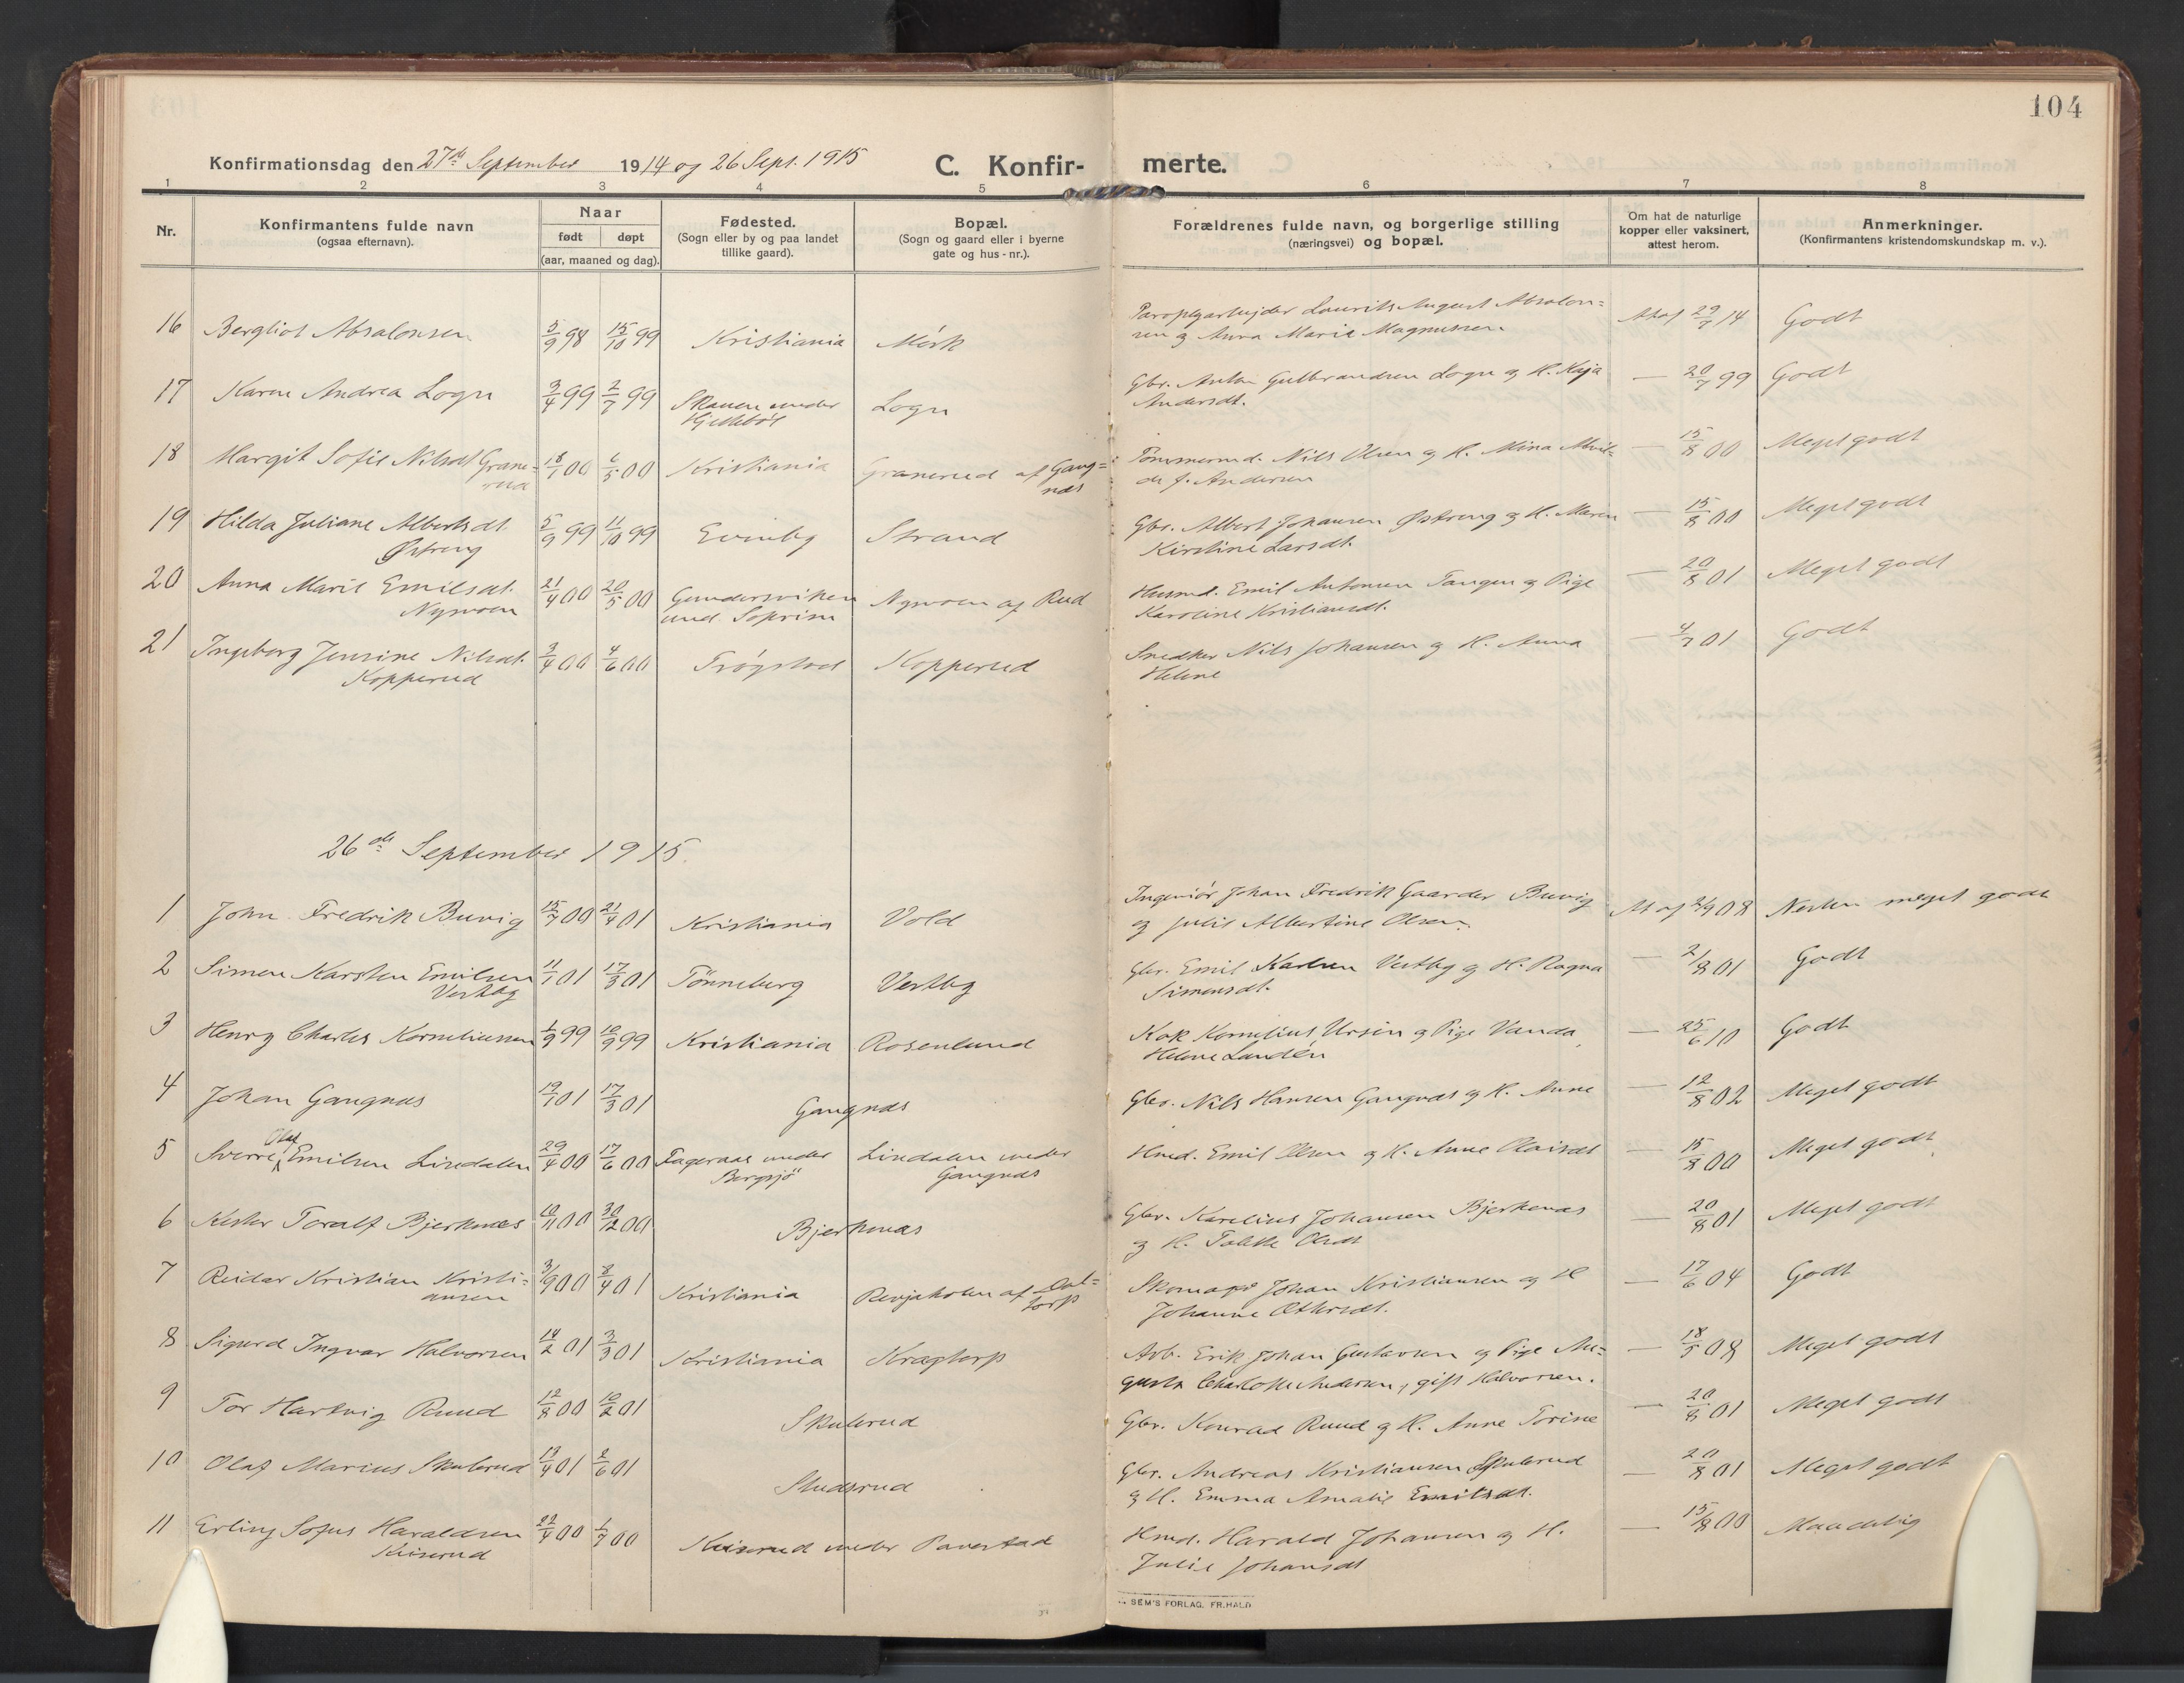 104
Konfirmationsdag den 27de September 1914 og 26 Sept. 1915
C. Konfir-
merte.
1 2 3 4 5 6 7 8
Nr.
Konfirmantens fulde navn
(ogsaa efternavn).
Naar
født døpt
(aar, maaned og dag).
Fødested.
(Sogn eller by og paa landet
tillike gaard).
Bopæl.
(Sogn og gaard eller i byerne
gate og hus-nr.).
Forældrenes fulde navn, og borgerlige stilling
(næringsvei) og bopæl.
Om hat de naturlige
kopper eller vaksinert,
attest herom.
Anmerkninger.
(Konfirmantens kristendomskundskap m. v.).
16 Bergliot Absalonsen 5/9 98 15/10 99 Kristiania Mörk Laurits August Absalon=
sen og Anna Marie Magnussen. 29/7 14 Godt
17 Karen Andrea Logn 3/4 99 2/7 99 Skauen under Logn Gbr. Anton Gulbrandsen Logn og H. Kaja — 20/7 99 Godt
Kjeltebøl Andersdt.
18 Margit Sofie Nilsdt Grane= 18/1 00 6/5 00 Kristiania Granerud af Gang= Tømmermd. Nils Olsen og H. Mina — 15/8 00 Meget godt
rud næs f. Andersen
19 Hilda Juliane Albertsdt. 5/9 99 11/10 99 Evenby Strand Gbr. Albert Johansen Østreng og H. Maren — 15/8 00 Meget godt
Østreng Kirstine Larsdt.
20 Anna Marie Emilsdt. 21/4 00 20/5 00 Gundersviken Nymoen af Rud Husmd. Emil Antonsen Tangen og Pige — 20/8 01 Meget godt
Nymoen und. Soprim Karoline Kristiansdt.
21 Ingeborg Jensine Nilsdt. 3/4 00 4/6 00 Trøgstad Kopperud Snedker Nils Johansen og H. Anna — 4/7 01 Godt
Kopperud Helene
26de September 1915.
1 John Fredrik Buvig 15/7 00 21/4 01 Kristiania Vold Ingeniör Johan Fredrik Gaarder Buvig 2/9 08 Nesten meget godt
og Julie Albertine Olsen.
2 Simen Karsten Emilsen 11/1 01 17/3 01 Tönneberg Vestby Gbr. Emil Karlsen Vestby og H. Ragna — 2/8 01 Godt
Vestby Simensdt.
3 Henry Charles Korneliussen 1/9 99 10/9 99 Kristiania Rosenlund Kok Kornelius Ursin og Pige Vanda — 25/6 10 Godt
Helene Landén
4 Johan Gangnæs 19/1 01 17/3 01 Gangnæs Gbr. Nils Hansen Gangnæs og H. Anne — 12/8 02 Meget godt
Olaf
5 Sverre Emilsen Lindalen 29/4 00 17/6 00 Fageraas under Lindalen under Hmd. Emil Olsen og H. Anne Olaisdt — 15/8 00 Meget godt
Bergsjö Gangnæs
6 Kester Toralf Bjerknæs 10/11 00 30/12 00 Bjerknæs Gbr. Karelius Johansen Bjerkenæs — 20/8 01 Meget godt
og H. Tolette Olsdt
7 Reidar Kristian Kristi= 3/9 00 8/4 01 Kristiania Revjeholen af Dal= Skomager Johan Kristiansen og H — 17/6 04 Godt
ansen torp Johanne Othersdt.
8 Sigurd Ingvar Halvorsen 14/2 01 3/3 01 Kristiania Kragtorp Arb. Erik Johan Gustavsen og Pige Au= — 18/5 08 Meget godt
gusta Charlotte Andersen, gift Halvorsen.
9 Tor Hartvig Ruud 12/8 00 10/2 01 Skulerud Gbr. Konrad Ruud og H. Anne Torine — 20/8 01 Meget godt
10 Olaf Marius Skulerud 13/4 01 2/6 01 Skulerud Gbr. Andreas Kristiansen Skulerud — 20/8 01 Meget godt
og H. Emma Amalie Emilsdt.
11 Erling Sofus Haraldsen 22/4 00 1/7 00 Kuiserud under Paverstad Hmd. Harald Johansen og H. — 15/8 00 Maadelig
Kuiserud Julie Johansdt
SEM'S FORLAG. FR. HALD